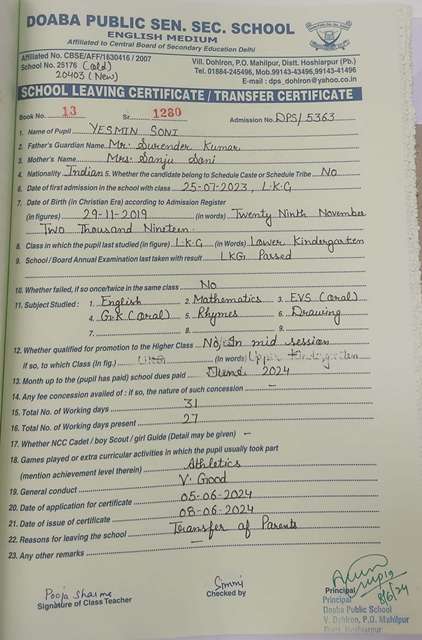 DOABA PUBLIC SEN. SEC. SCHOOL
ENGLISH MEDIUM
Affiliated to Central Board of Secondary Education Delhi
Affiliated No. CBSE/AFF/1630416 / 2007
School No. 25176 (old)
20403 (New)
Vill. Dohlron, P.O. Mahilpur, Distt. Hoshiarpur (Pb.)
Tel. 01884-245496, Mob.99143-43496,99143-41496
E-mail : dps_dohlron@yahoo.co.in
SCHOOL LEAVING CERTIFICATE / TRANSFER CERTIFICATE
Book No. 13 Sr. 1280 Admission No. DPS/5363
1. Name of Pupil YESMIN SONI
2. Father's/Guardian Name Mr. Surender Kumar
3. Mother's Name Mrs. Sanju Soni
4. Nationality Indian 5. Whether the candidate belong to Schedule Caste or Schedule Tribe No
6. Date of first admission in the school with class 25-07-2023, L.K.G
7. Date of Birth (in Christian Era) according to Admission Register
(in figures) 29-11-2019 (in words) Twenty Ninth November
Two Thousand Nineteen
8. Class in which the pupil last studied (in figure) L.K.G (in Words) Lower Kindergarten
9. School / Board Annual Examination last taken with result LKG Passed
10. Whether failed, if so once/twice in the same class No
11. Subject Studied : 1. English 2. Mathematics 3. EVS (oral)
4. G.K (oral) 5. Rhymes 6. Drawing
7. 8. 9.
12. Whether qualified for promotion to the Higher Class No, In mid session
if so, to which Class (In fig.) UKG (In words) Upper Kindergarten
13. Month up to the (pupil has paid) school dues paid June 2024
14. Any fee concession availed of : if so, the nature of such concession -
15. Total No. of Working days 31
16. Total No. of Working days present 27
17. Whether NCC Cadet / boy Scout / girl Guide (Detail may be given) -
18. Games played or extra curricular activities in which the pupil usually took part
(mention achievement level therein) Athletics
19. General conduct V. Good
20. Date of application for certificate 05-06-2024
21. Date of issue of certificate 08-06-2024
22. Reasons for leaving the school Transfer of Parents
23. Any other remarks -
Pooja Sharma
Signature of Class Teacher
Simmi
Checked by
8/6/24
Principal
Principal
Doaba Public School
V. Dohlron, P.O. Mahilpur
Distt. Hoshiarpur